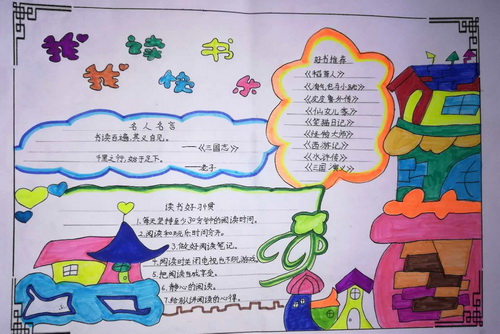 我读书
我快乐
好书推荐
《稻草人》
《淘气包马小跳》
《皮皮鲁外传》
《仙女儿家》
《笑猫日记》
《怪物大师》
《西游记》
《水浒传》
《三国演义》
名人名言
书读百遍,其义自见。
——《三国志》
千里之行,始于足下。
——老子
读书好习惯
1.每天坚持至少30分钟的阅读时间。
2.阅读和玩乐时间分开。
3.做好阅读笔记。
4.阅读时关闭电视也不玩游戏
5.把阅读当成享受。
6.静心的阅读。
7.给别人讲阅读的心得。